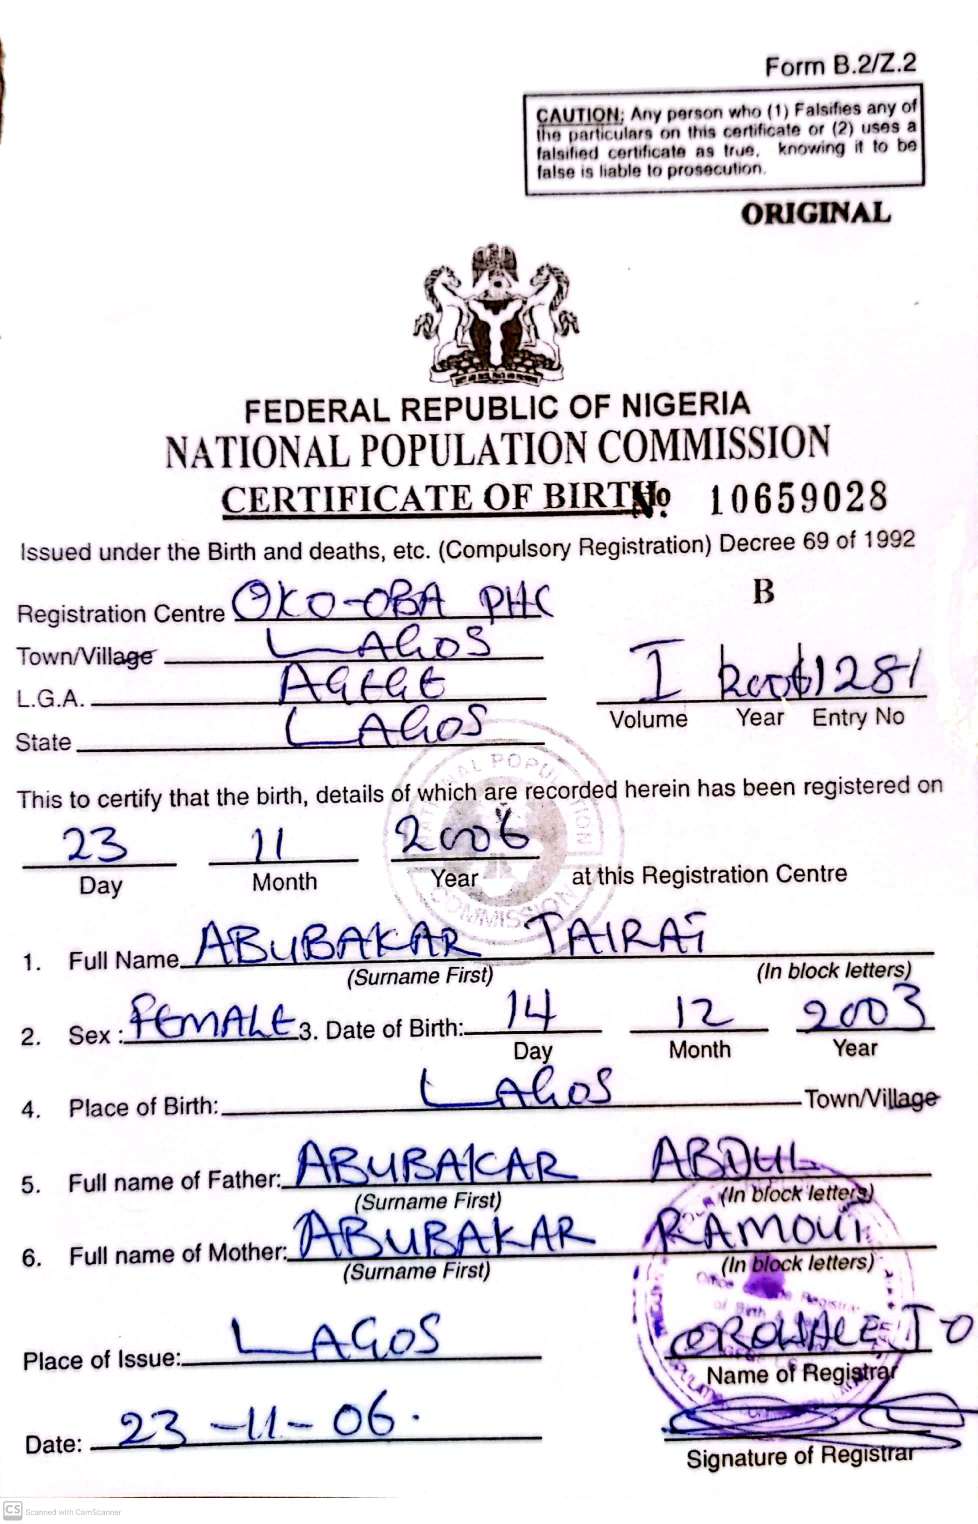 Form B.2/Z.2
CAUTION; Any person who (1) Falsifies any of
the particulars on this certificate or (2) uses a
falsified certificate as true, knowing it to be
false is liable to prosecution.
ORIGINAL
FEDERAL REPUBLIC OF NIGERIA
NATIONAL POPULATION COMMISSION
CERTIFICATE OF BIRTH No. 10659028
Issued under the Birth and deaths, etc. (Compulsory Registration) Decree 69 of 1992
B
Registration Centre OKO-OBA PHC
Town/Village LAGOS
L.G.A. AGEGE
State LAGOS
I 2006 1281
Volume Year Entry No
This to certify that the birth, details of which are recorded herein has been registered on
23 11 2006
Day Month Year at this Registration Centre
1. Full Name ABUBAKAR TAIRAT
(Surname First) (In block letters)
2. Sex : FEMALE 3. Date of Birth: 14 12 2003
Day Month Year
4. Place of Birth: LAGOS Town/Village
5. Full name of Father: ABUBAKAR ABDUL
(Surname First) (In block letters)
6. Full name of Mother: ABUBAKAR RAMOUT
(Surname First) (In block letters)
Place of Issue: LAGOS
Name of Registrar
Date: 23-11-06.
Signature of Registrar
CS Scanned with CamScanner